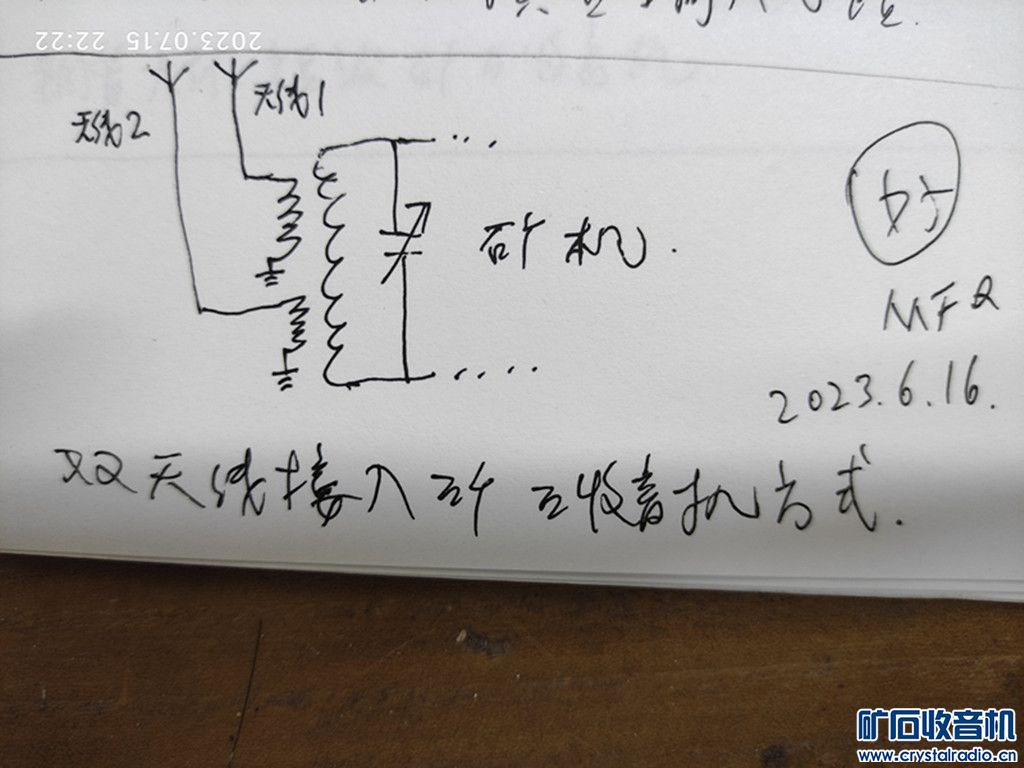 2023.07.15 22:22
天线1
天线2
矿机.
好
MFQ
2023.6.16.
双天线接入矿石收音机方式.
矿石收音机
www.crystalradio.cn